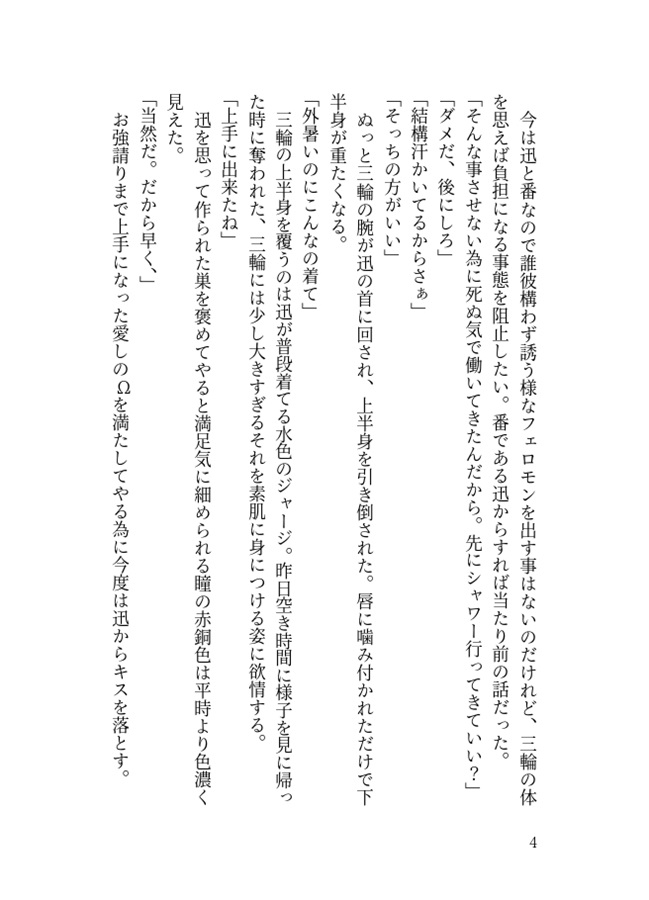 今は迅と番なので誰彼構わず誘う様なフェロモンを出す事はないのだけれど、三輪の体
を思えば負担になる事態を阻止したい。番である迅からすれば当たり前の話だった。
「そんな事させない為に死ぬ気で働いてきたんだから。先にシャワー行ってきていい？」
「ダメだ、後にしろ」
「結構汗かいてるからさぁ」
「そっちの方がいい」
ぬっと三輪の腕が迅の首に回され、上半身を引き倒された。唇に噛み付かれただけで下
半身が重たくなる。
「外暑いのにこんなの着て」
三輪の上半身を覆うのは迅が普段着てる水色のジャージ。昨日空き時間に様子を見に帰っ
た時に奪われた、三輪には少し大きすぎるそれを素肌に身につける姿に欲情する。
「上手に出来たね」
迅を思って作られた巣を褒めてやると満足気に細められる瞳の赤銅色は平時より色濃く
見えた。
「当然だ。だから早く、」
お強請りまで上手になった愛しのΩを満たしてやる為に今度は迅からキスを落とす。
4